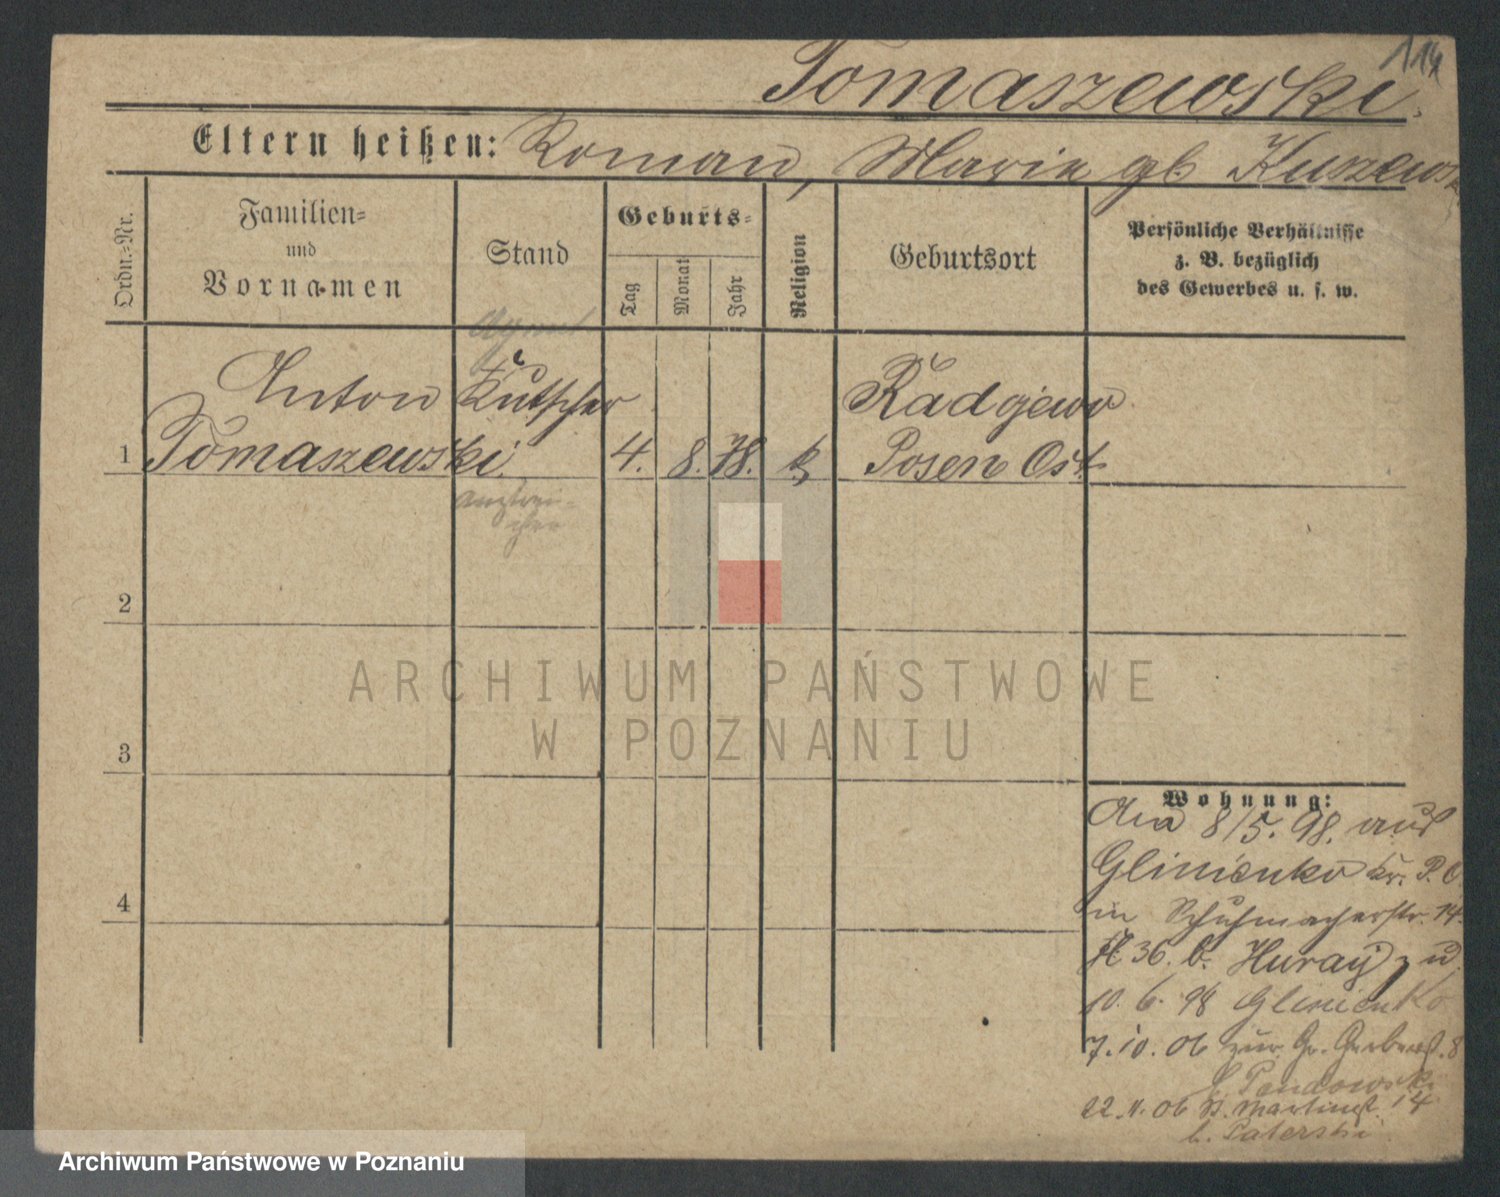 114
Tomaszewski.
Eltern heißen: Roman, Marie gb Kuszewsk
Ordn.-Nr.
Familien-
und
Vornamen
Stand
Geburts-
Tag
Monat
Jahr
Religion
Geburtsort
Persönliche Verhältnisse
z. B. bezüglich
des Gewerbes u. s. w.
Anton Kutscher Radojewo
1 Tomaszewski. 4. 8. 78. k Posen Ost
2
3
4
Wohnung:
8/5. 98. aus
Glinienko Kr. P. O.
in Schuhmacherstr. 14.
36. b. Huray
10. 6. 98 Glinienko
7.10.06 zur Gr. Gerberst. 8
Pendowski
22. 11. 06 St. Martinst. 14
b. Paterski
ARCHIWUM PAŃSTWOWE
W POZNANIU
Archiwum Państwowe w Poznaniu